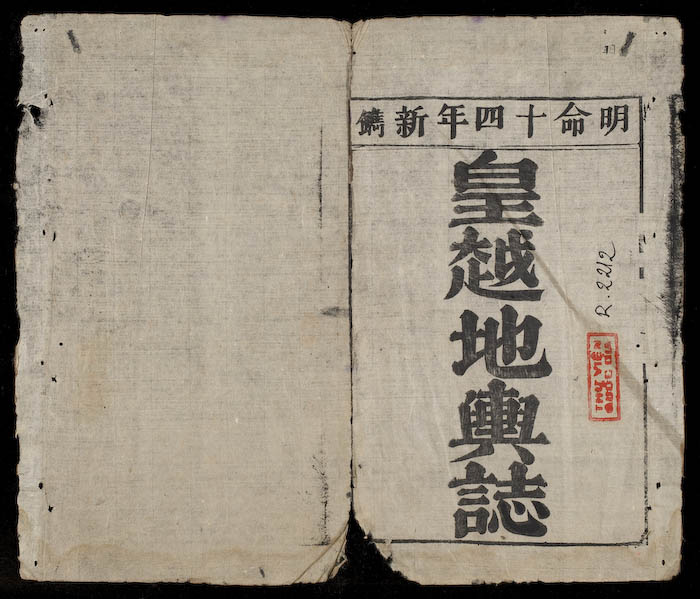 明命十四年新鐫
皇越地輿誌
R.2212
THƯ VIỆN
QUỐC GIA